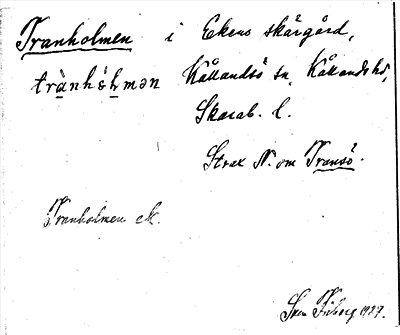 Tranholmen i Ekens skärgård,
trànhòḷmən Kållandsö sn, Kållands hd,
Skarab. l.
Strax N. om Transö.
Tranholmen ek.
1927.